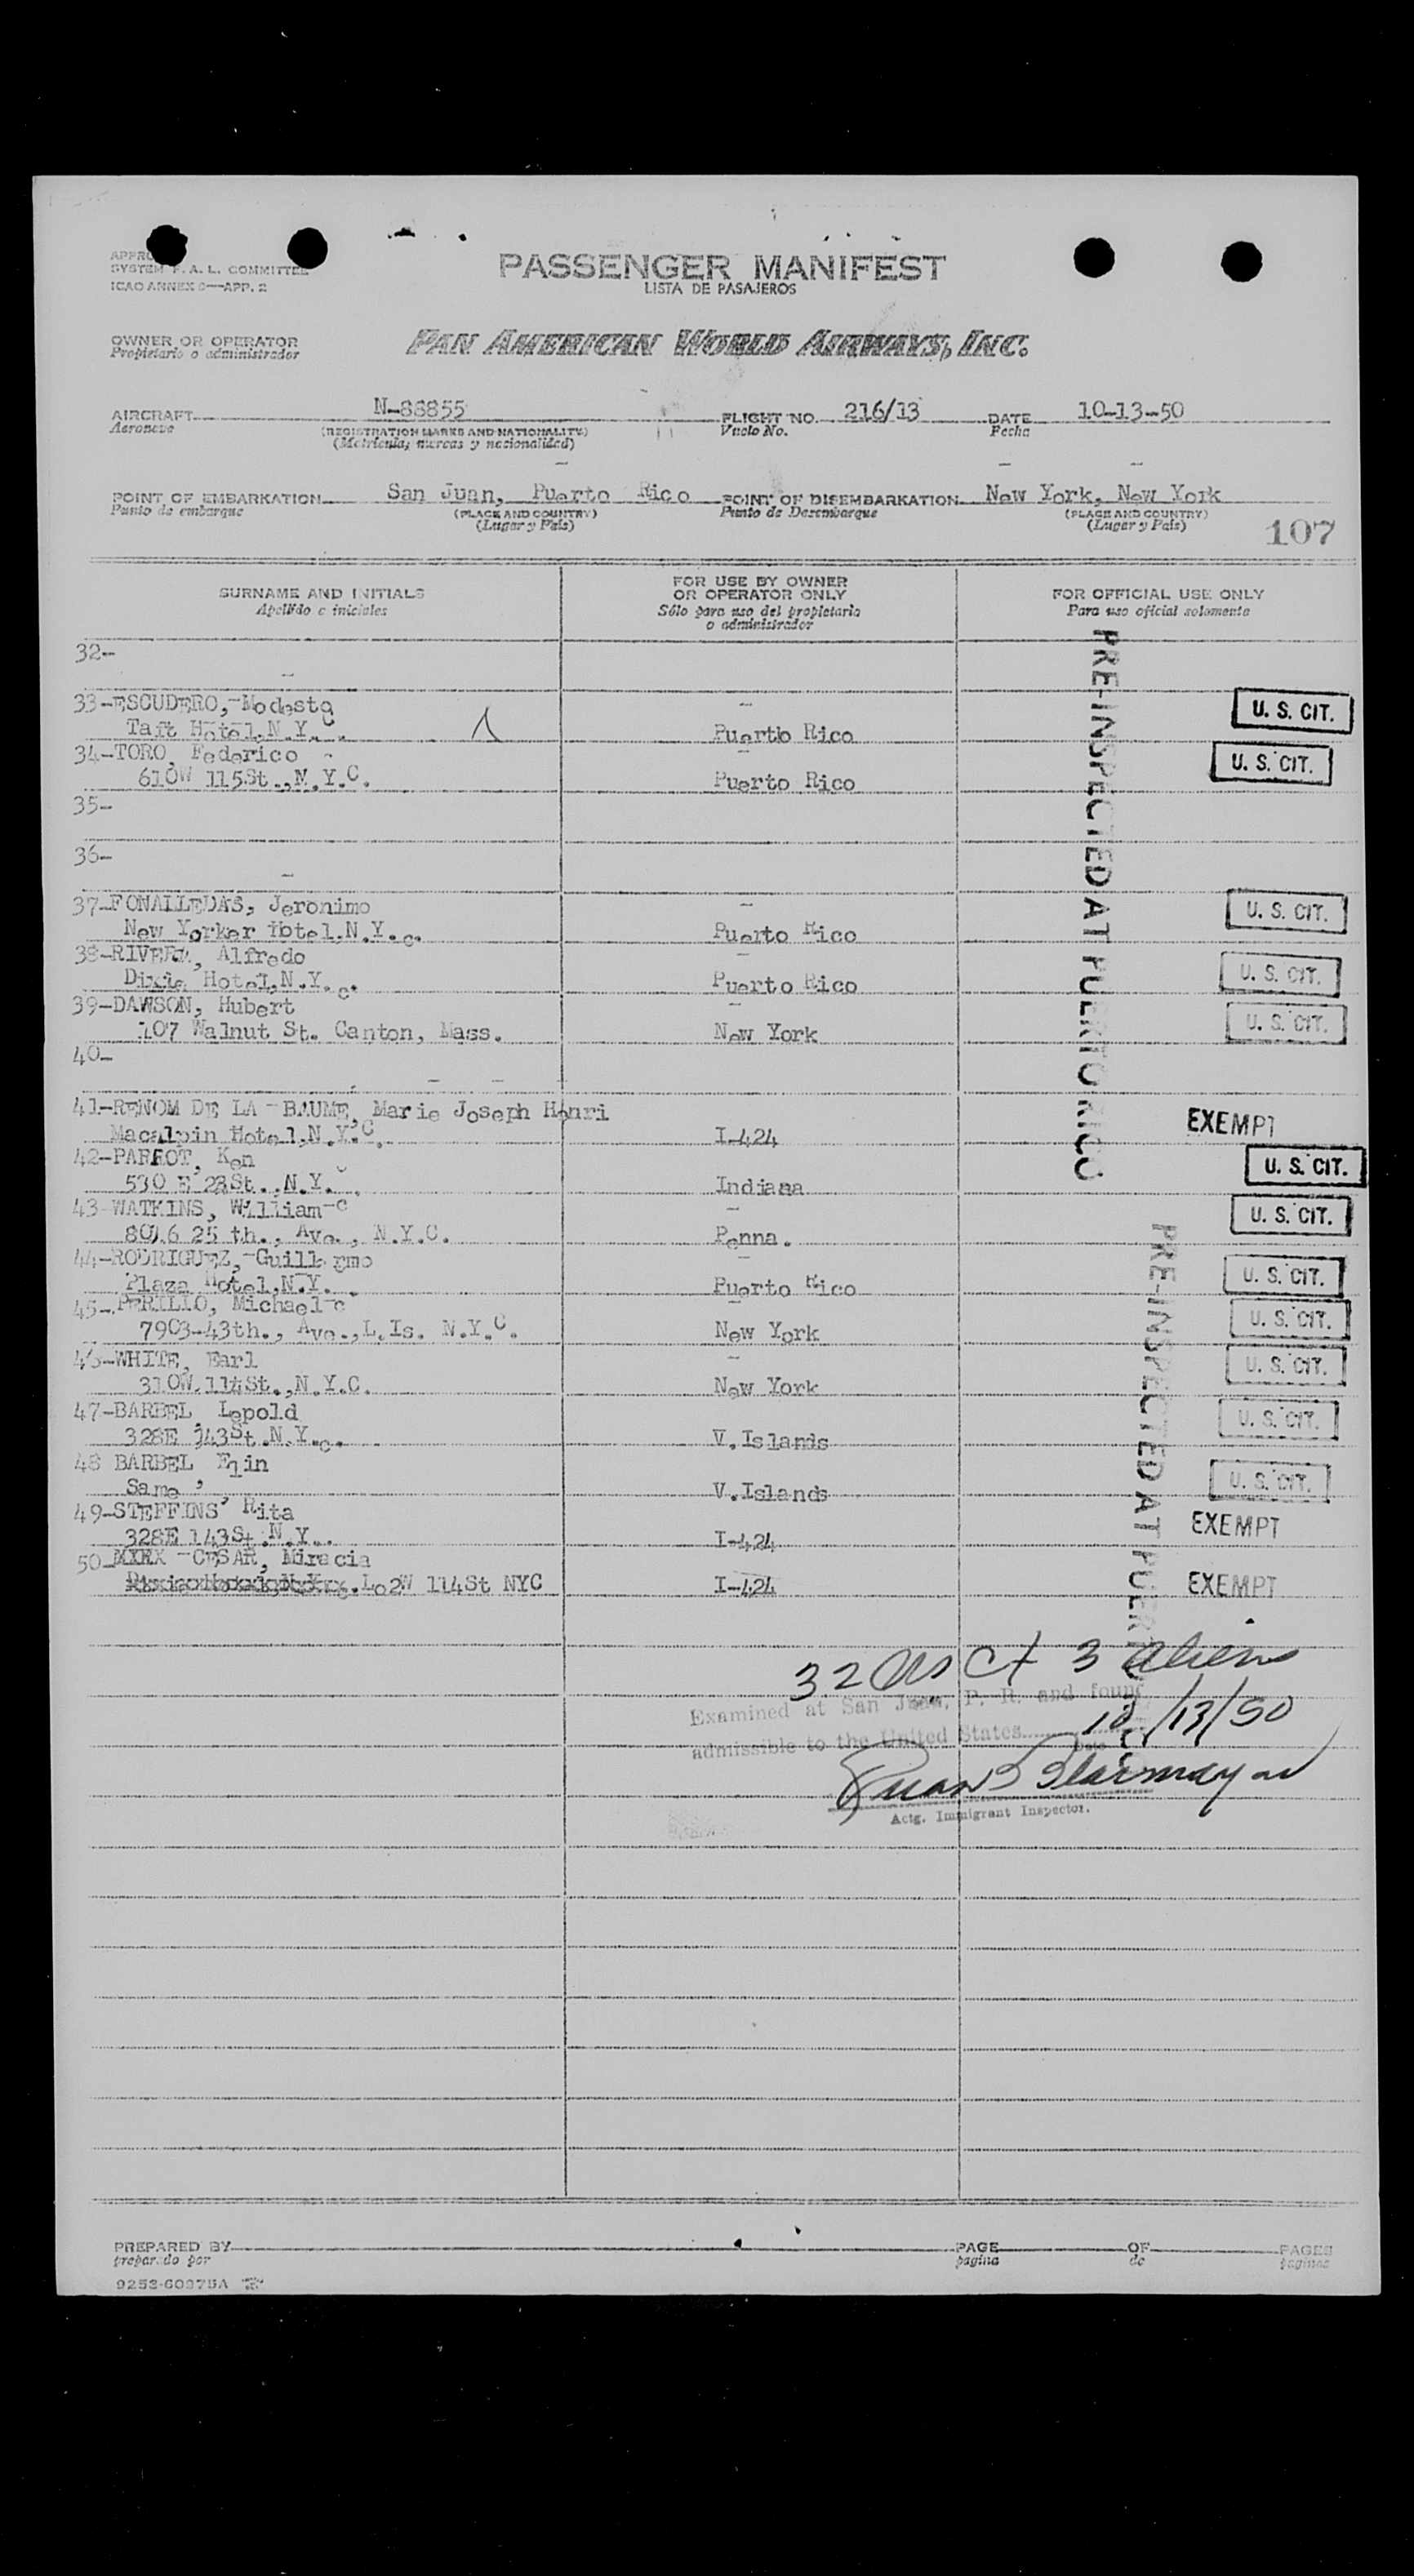 SYSTEM F. A. L. COMMITTEE
ICAO ANNEX 9—APP. 2
PASSENGER MANIFEST
LISTA DE PASAJEROS
OWNER OR OPERATOR
Propietario o administrador
PAN AMERICAN WORLD AIRWAYS, INC.
AIRCRAFT N-88855 FLIGHT NO. 216/13 DATE 10-13-50
Aeronave (REGISTRATION MARKS AND NATIONALITY) Vuelo No. Fecha
(Matricula, marcas y nacionalidad)
POINT OF EMBARKATION San Juan, Puerto Rico POINT OF DISEMBARKATION New York, New York
Punto de embarque (PLACE AND COUNTRY) Punto de Desembarque (PLACE AND COUNTRY)
(Lugar y País) (Lugar y País)
107
SURNAME AND INITIALS FOR USE BY OWNER OR OPERATOR ONLY FOR OFFICIAL USE ONLY
Apellido e iniciales Sólo para uso del propietario o administrador Para uso oficial solamente
PRE-INSPECTED AT PUERTO RICO
32-
33-ESCUDERO, Modesto U. S. CIT.
Taft Hotel, N.Y.C. Puerto Rico
34-TORO, Federico U. S. CIT.
610W 115St., N.Y.C. Puerto Rico
35-
36-
37-FONALLEDAS, Jeronimo U. S. CIT.
New Yorker Hotel, N.Y.C. Puerto Rico
38-RIVERA, Alfredo U. S. CIT.
Dixie Hotel, N.Y.C. Puerto Rico
39-DAWSON, Hubert U. S. CIT.
107 Walnut St. Canton, Mass. New York
40-
41-RENOM DE LA BAUME, Marie Joseph Hanri EXEMPT
Macalpin Hotel, N.Y.C. I-424
42-PARROT, Ken U. S. CIT.
530 E 28St., N.Y.C. Indiana
43-WATKINS, William U. S. CIT.
25 th., Ave., N.Y.C. Penna.
44-RODRIGUEZ, Guillermo U. S. CIT.
Plaza Hotel, N.Y.C. Puerto Rico
PRE-INSPECTED AT PUERTO RICO
45-PERILLO, Michael U. S. CIT.
7903-43th., Ave., L.Is. N.Y.C. New York
46-WHITE, Earl U. S. CIT.
310W. 114St., N.Y.C. New York
47-BARBEL, Lepold U. S. CIT.
328E 143St. N.Y.C. V.Islands
48 BARBEL, Elin U. S. CIT.
Same V.Islands
49-STEFFINS, Rita EXEMPT
328E 143St. N.Y. I-424
50- CESAR, Miracia EXEMPT
114St NYC I-424
32 US Ct 3 aliens
Examined at San Juan, P. R. and found
admissible to the United States 10/13/50
Date
Actg. Immigrant Inspector.
PREPARED BY PAGE OF PAGES
preparado por pagina de paginas